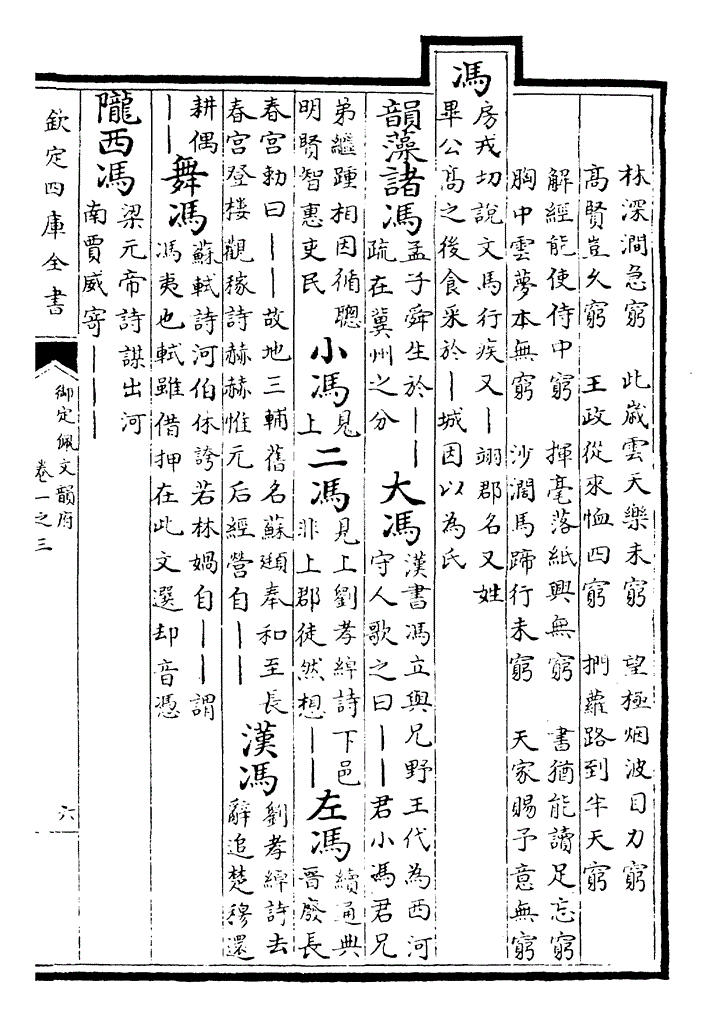 林深澗急窮　此嵗雲天樂未窮　望極烟波目力窮
髙賢豈乆窮　王政從來恤四窮　捫蘿路到半天窮
解經能使侍中窮　揮毫落紙興無窮　書猶能讀足忘窮
胸中雲夢本無窮　沙濶馬蹄行未窮　天家賜予意無窮
馮
房戎切說文馬行疾又丨翊郡名又姓
畢公髙之後食采於丨城因以為氏
韻藻諸馮
孟子舜生於丨丨
疏在冀州之分
大馮
漢書馮立與兄野王代為西河
守人歌之曰丨丨君小馮君兄
弟繼踵相因循聰
明賢智惠吏民
小馮
見
上
二馮
見上劉孝綽詩下邑
非上郡徒然想丨丨
左馮
續通典
晉廢長
春宫勅曰丨丨故地三輔舊名蘇頲奉和至長
春宫登樓觀稼詩赫赫惟元后經營自丨丨
漢馮
劉孝綽詩去
辭追楚穆還
耕偶
丨丨
舞馮
蘇軾詩河伯休誇若林媧自丨丨謂
馮夷也軾雖借押在此文選却音憑
隴西馮
梁元帝詩謀出河
南賈威寄丨丨丨
欽定四庫全書
御定佩文韻府
卷一之三
六